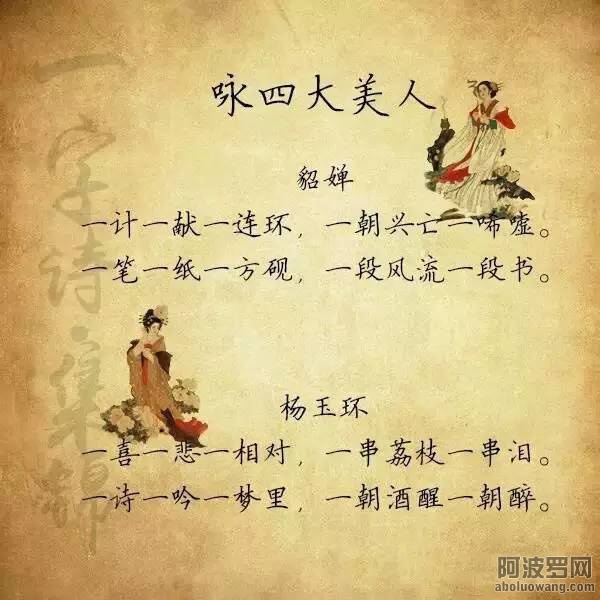 咏四大美人
貂婵
一计一献一连环，一朝兴亡一唏嘘。
一笔一纸一方砚，一段风流一段书。
杨玉环
一喜一悲一相对，一串荔枝一串泪。
一诗一吟一梦里，一朝酒醒一朝醉。
一字诗集锦
阿波罗网
aboluowang.com